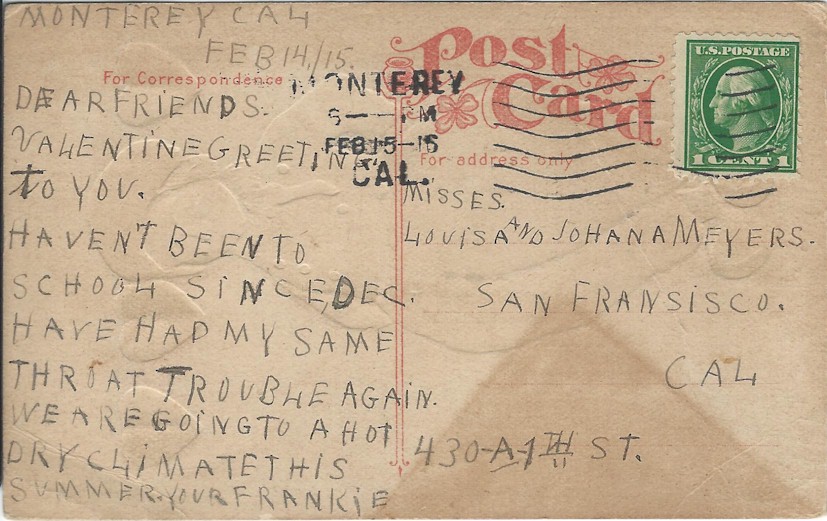 MONTEREY CAL
FEB 14/15.
For Correspondence
DEAR FRIENDS.
VALENTINE GREETING
TO YOU.
HAVEN'T BEEN TO
SCHOOL SINCE, DEC.
HAVE HAD MY SAME
THROAT TROUBLE AGAIN.
WE ARE GOING TO A HOT
DRY CLIMATE THIS
SUMMER. YOUR FRANKIE
Post
Card
MONTEREY
FEB 15
CAL.
U.S. POSTAGE
1 CENT 1
For address only
MISSES.
LOUISA AND JOHANA MEYERS.
SAN FRANSISCO.
CAL
430-A-7TH ST.